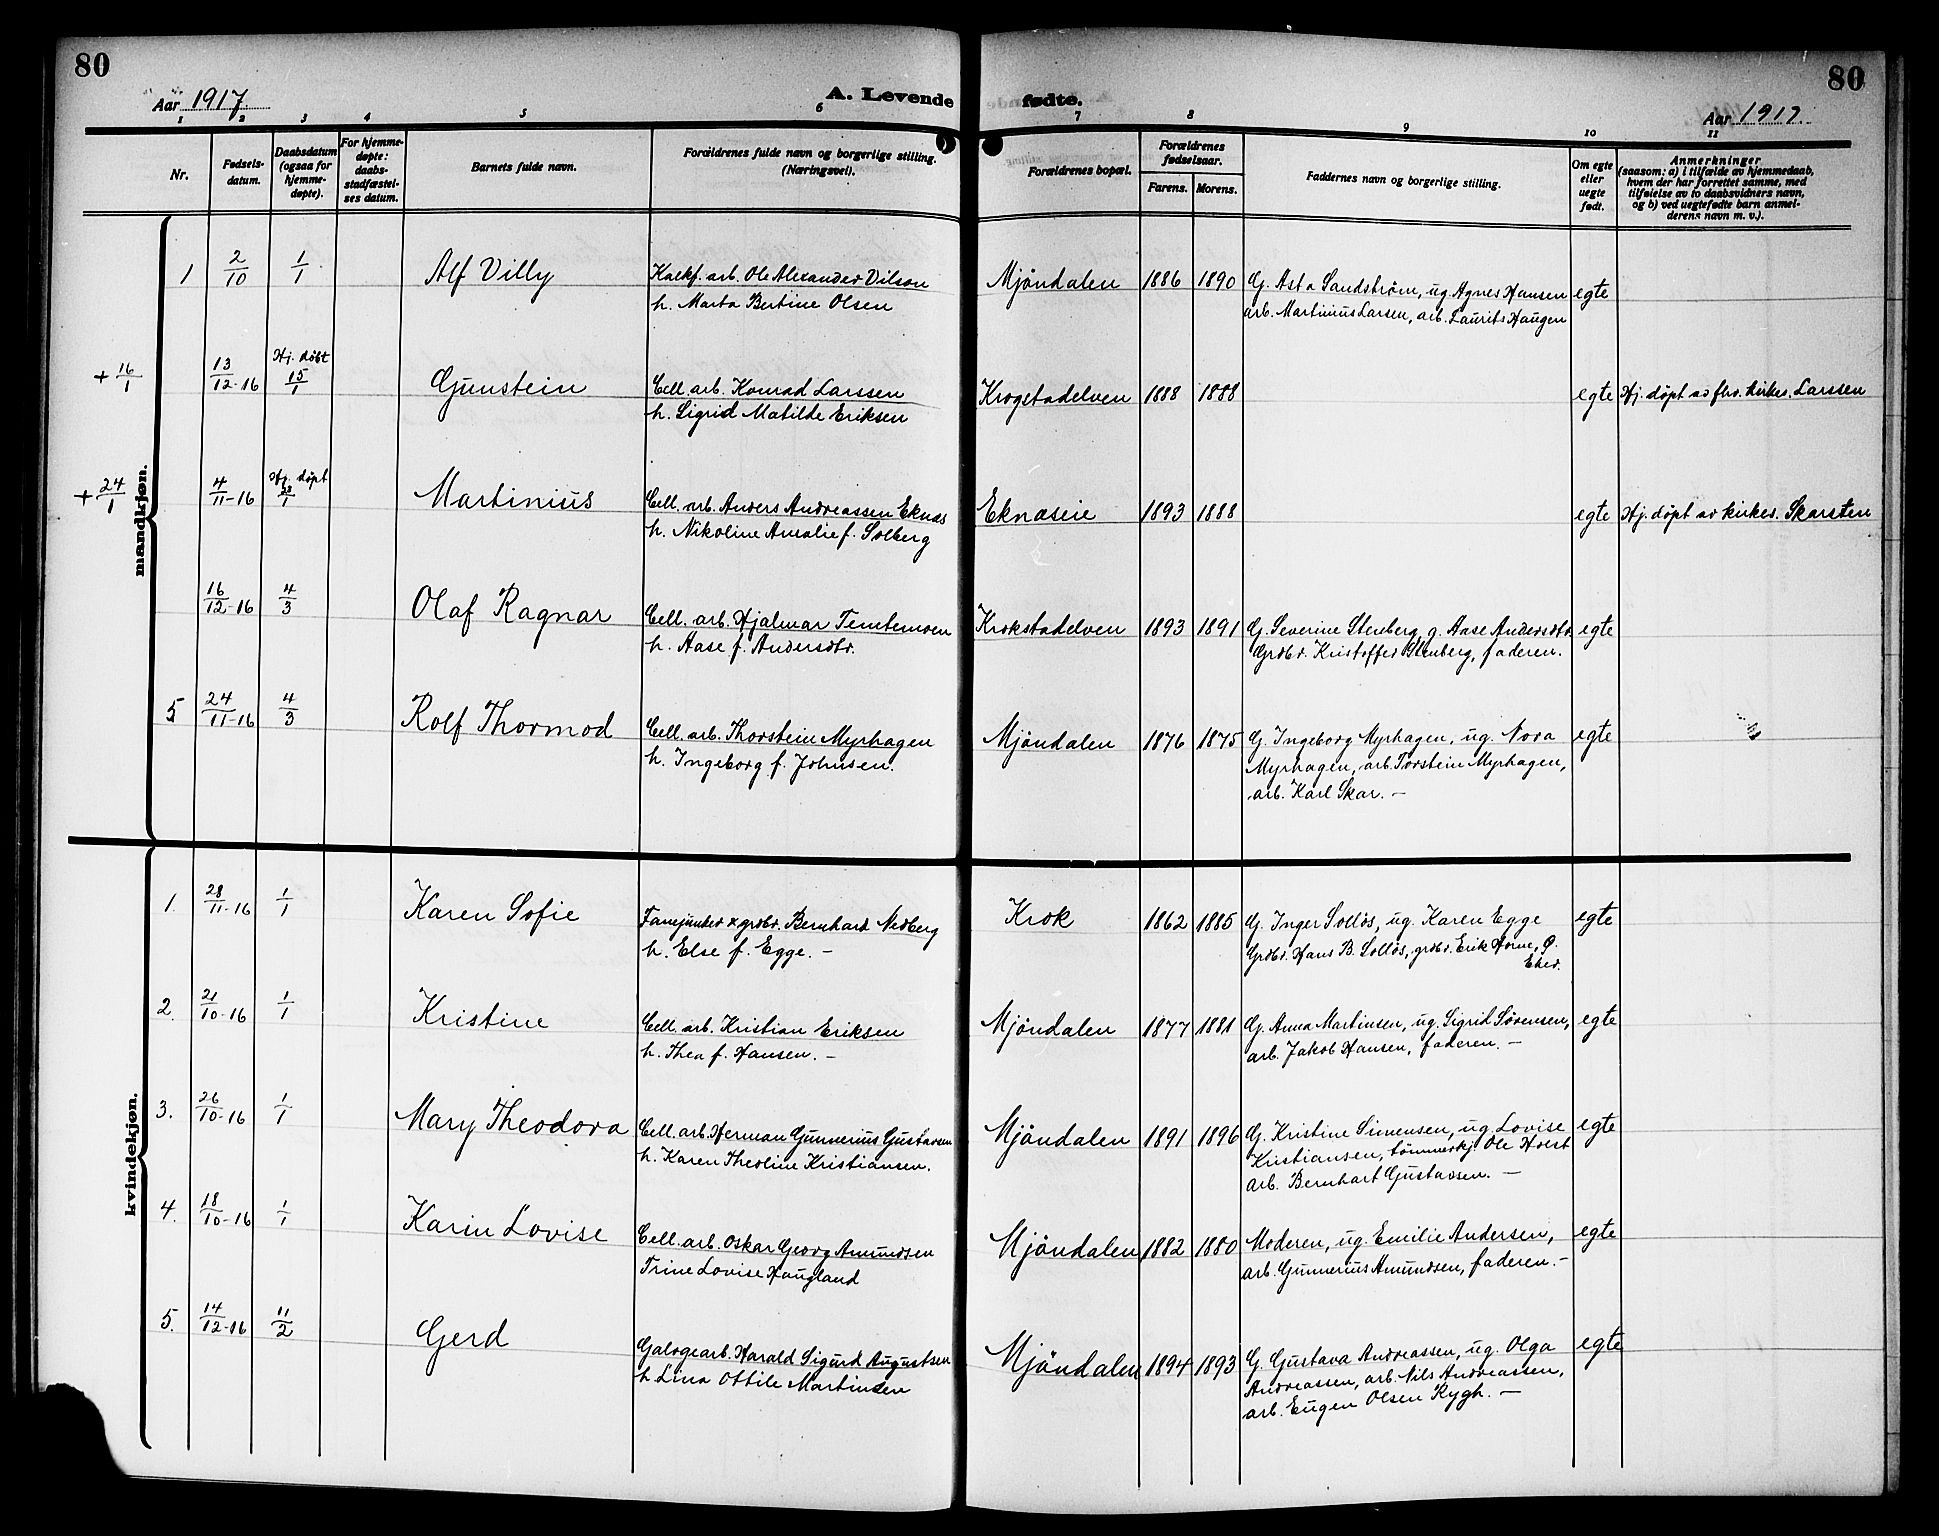 80
80
Aar 1917.
A. Levende
fødte.
Aar 1917.
1 2 3 4 5 6 7 8 9 10 11
Nr.
Fødsels-
datum.
Daabsdatum
(ogsaa for
hjemme-
døpte).
For hjemme-
døpte:
daabs-
stadfæstel-
ses datum.
Barnets fulde navn.
Forældrenes fulde navn og borgerlige stilling.
(Næringsvei).
Forældrenes bopæl.
Forældrenes
fødselsaar.
Farens. Morens.
Faddernes navn og borgerlige stilling.
Om egte
eller
uegte
født.
Anmerkninger
(saasom: a) i tilfælde av hjemmedaab,
hvem der har forrettet samme, med
tilføielse av to daabsvidners navn,
og b) ved uegtefødte barn anmel-
derens navn m. v.).
mandkjøn.
1 2/10 1/1 Alf Villy Kalkf. arb. Ole Alexander Vilson Mjöndalen 1886 1890 G. Asta Sandstrøm, ug. Agnes Hansen egte
h. Marta Bertine Olsen arb. Martinius Larsen, arb. Laurits Haugen
+ 16/1 13/12-16 Hj. döbt 15/1 Gunstein Cell. arb. Konrad Larssen Krogstadelven 1888 1888 egte Hj. döpt av fhv. kirkes. Larssen
h. Sigrid Matilde Eriksen
+ 24/1 4/11-16 Hj. døpt 23/1 Martinius Cell. arb. Anders Andreassen Eknæs Eknæseie 1893 1888 egte Hj. döpt av kirkes. Skarsten
h. Nikoline Amalie f. Solberg
16/12-16 4/3 Olaf Ragnar Cell. arb. Hjalmar Temtemoen Krokstadelven 1893 1891 G. Severine Stenberg, g. Aase Andersdtr. egte
h. Aase f. Andersdtr. Grdbr. Kristoffer Stenberg, faderen.
5 24/11-16 4/3 Rolf Thormod Cell. arb. Thorstein Myrhagen Mjöndalen 1876 1875 G. Ingeborg Myrhagen, ug. Nora egte
h. Ingeborg f. Johnsen. Myrhagen, arb. Torstein Myrhagen,
arb. Karl Skar. –
kvindekjøn.
1. 28/11-16 1/1 Karen Sofie Fanejunker & grdbr. Bernhard Nedberg Krok 1862 1885 G. Inger Solløs, ug. Karen Egge egte
h. Else f. Egge. – Grdbr. Hans B. Solløs, grdbr. Erik Horne, Ø.
Eker.
2. 21/10-16 1/1 Kristine Cell. arb. Kristian Eriksen Mjöndalen 1877 1881 G. Anna Martinsen, ug. Sigrid Sørensen, egte
h. Thea f. Hansen. – arb. Jakob Hansen, faderen. –
3. 26/10-16 1/1 Mary Theodora Cell. arb. Herman Gunnerius Gustavsen Mjöndalen 1891 1896 G. Kristine Simensen, ug. Lovise egte
h. Karen Theoline Kristiansen. Kristiansen, tömmerkj. Ole Holst
arb. Bernhart Gustavsen. –
4. 18/10-16 1/1 Karin Lovise Cell. arb. Oskar Georg Amundsen Mjöndalen 1882 1880 Moderen, ug. Emilie Andersen, egte
Trine Lovise Haugland arb. Gunnerius Amundsen, faderen. –
5. 14/12-16 11/2 Gerd Galogearb. Harald Sigurd Augustsen Mjöndalen 1894 1893 G. Gustava Andreassen, ug. Olga egte
h Lina Ottile Martinsen Andreassen, arb. Nils Andreassen,
arb. Eugen Olsen Rygh. –